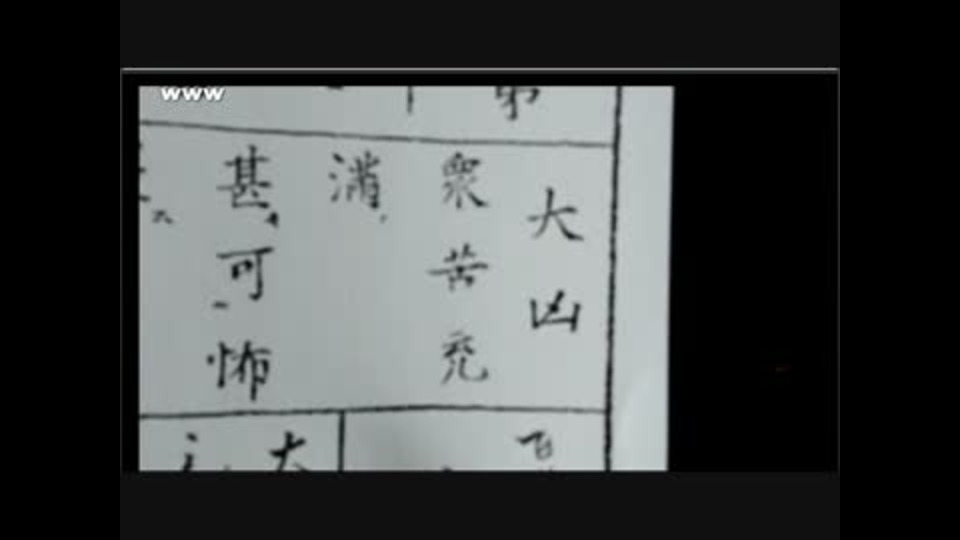 www
大凶
衆苦充
滿
甚可怖
大